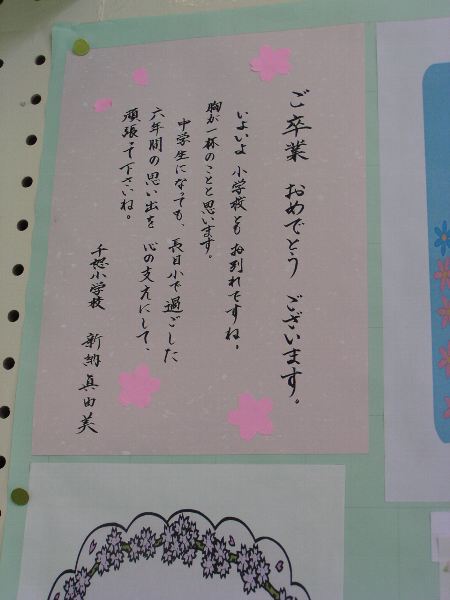 ご卒業 おめでとう ございます。
いよいよ 小学校とも お別れですね。
胸が一杯のことと思います。
中学生になっても、長目小で過ごした
六年間の思い出を 心の支えにして、
頑張って下さいね。
千怒小学校 新納真由美